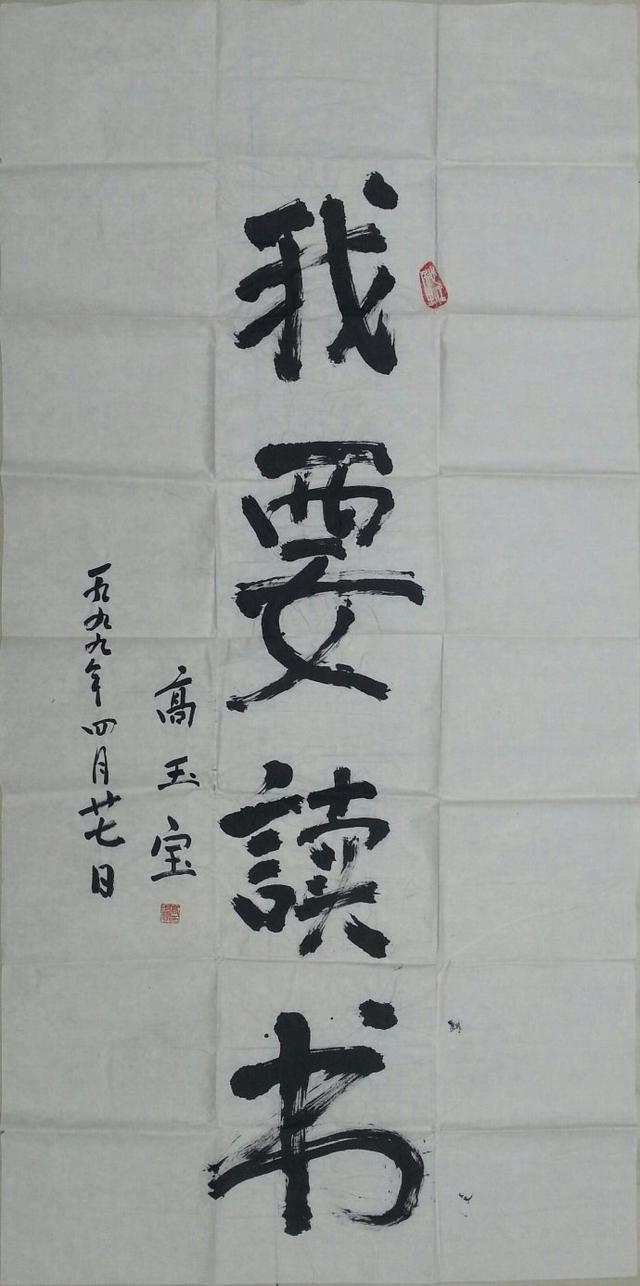 我要读书
高玉宝
一九九九年四月廿七日